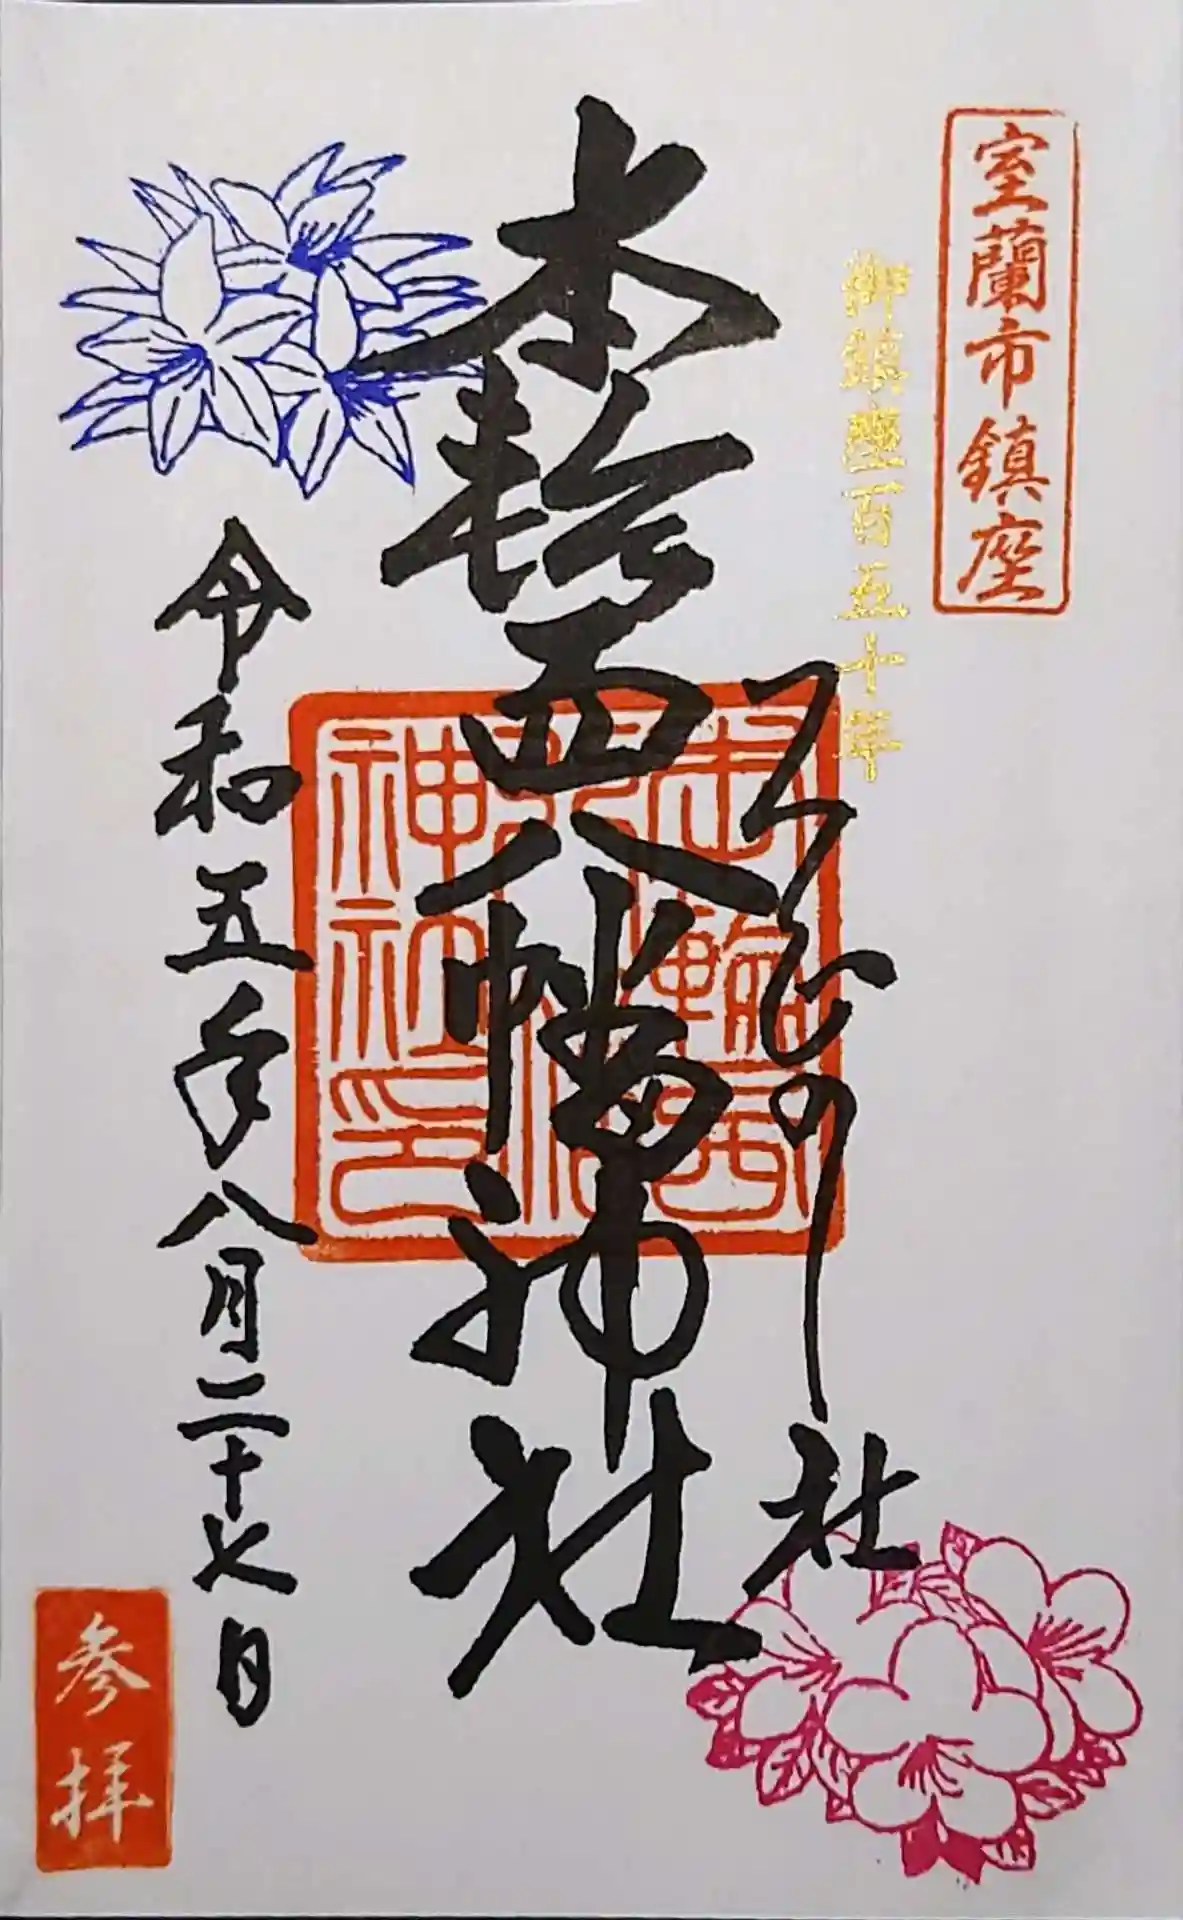 室蘭市鎮座
御鎮座百五十年
つつじの社
本輪西八幡神社
本輪西
八幡
神社印
令和五年八月二十七日
参拝